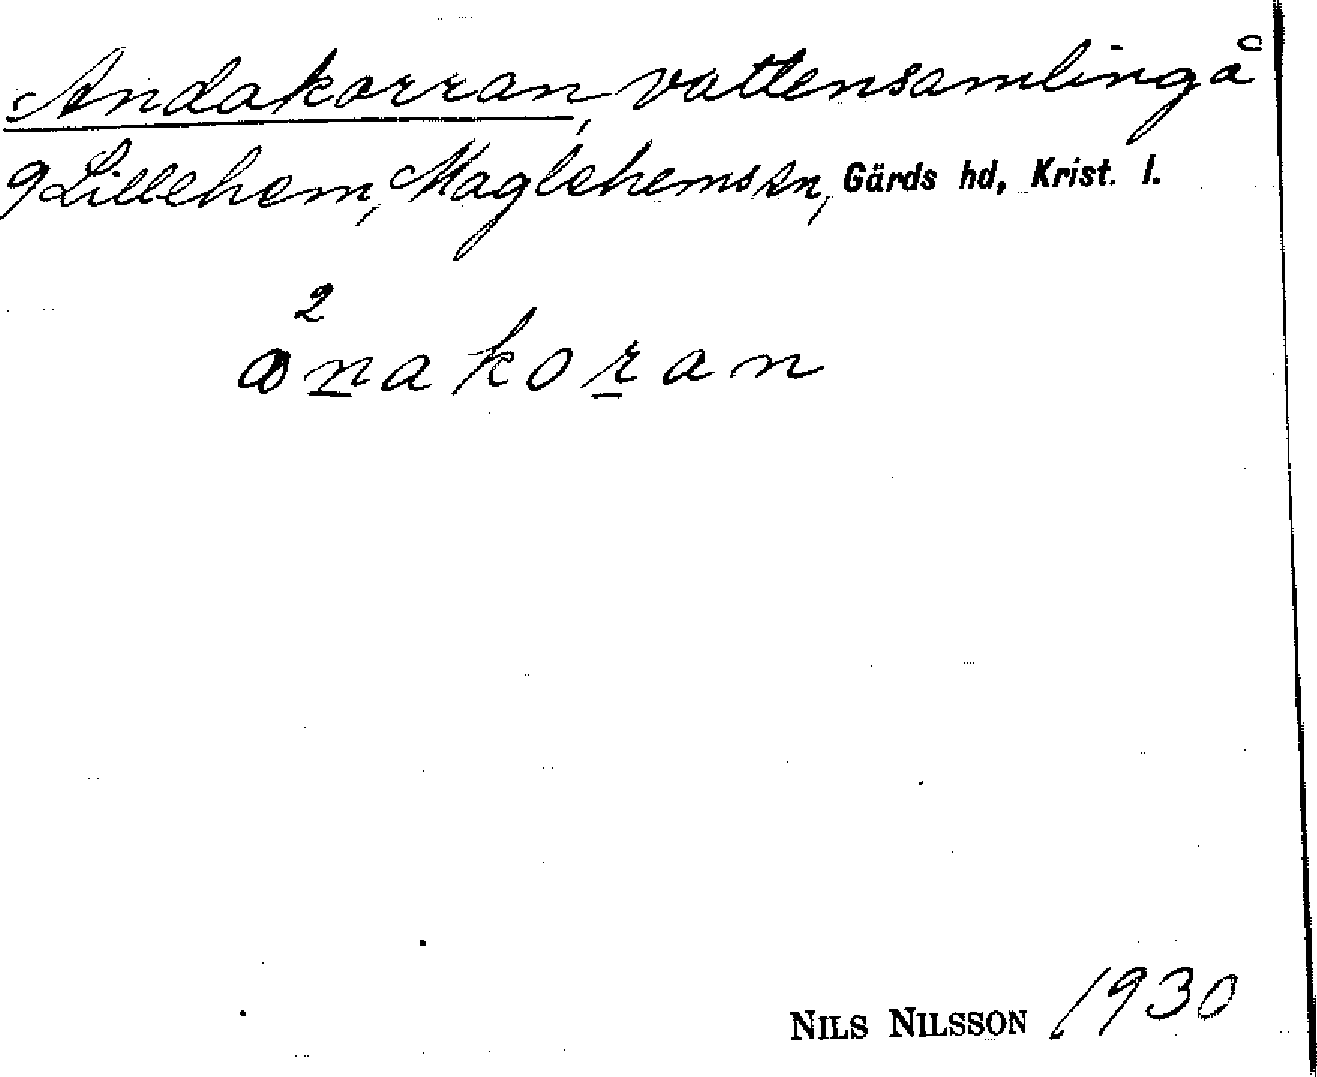 Andakorran, vattensamling å
9 Lillehem, Maglehems sn, Gärds hd, Krist. l.
2
ꭤnakoran
NILS NILSSON 1930